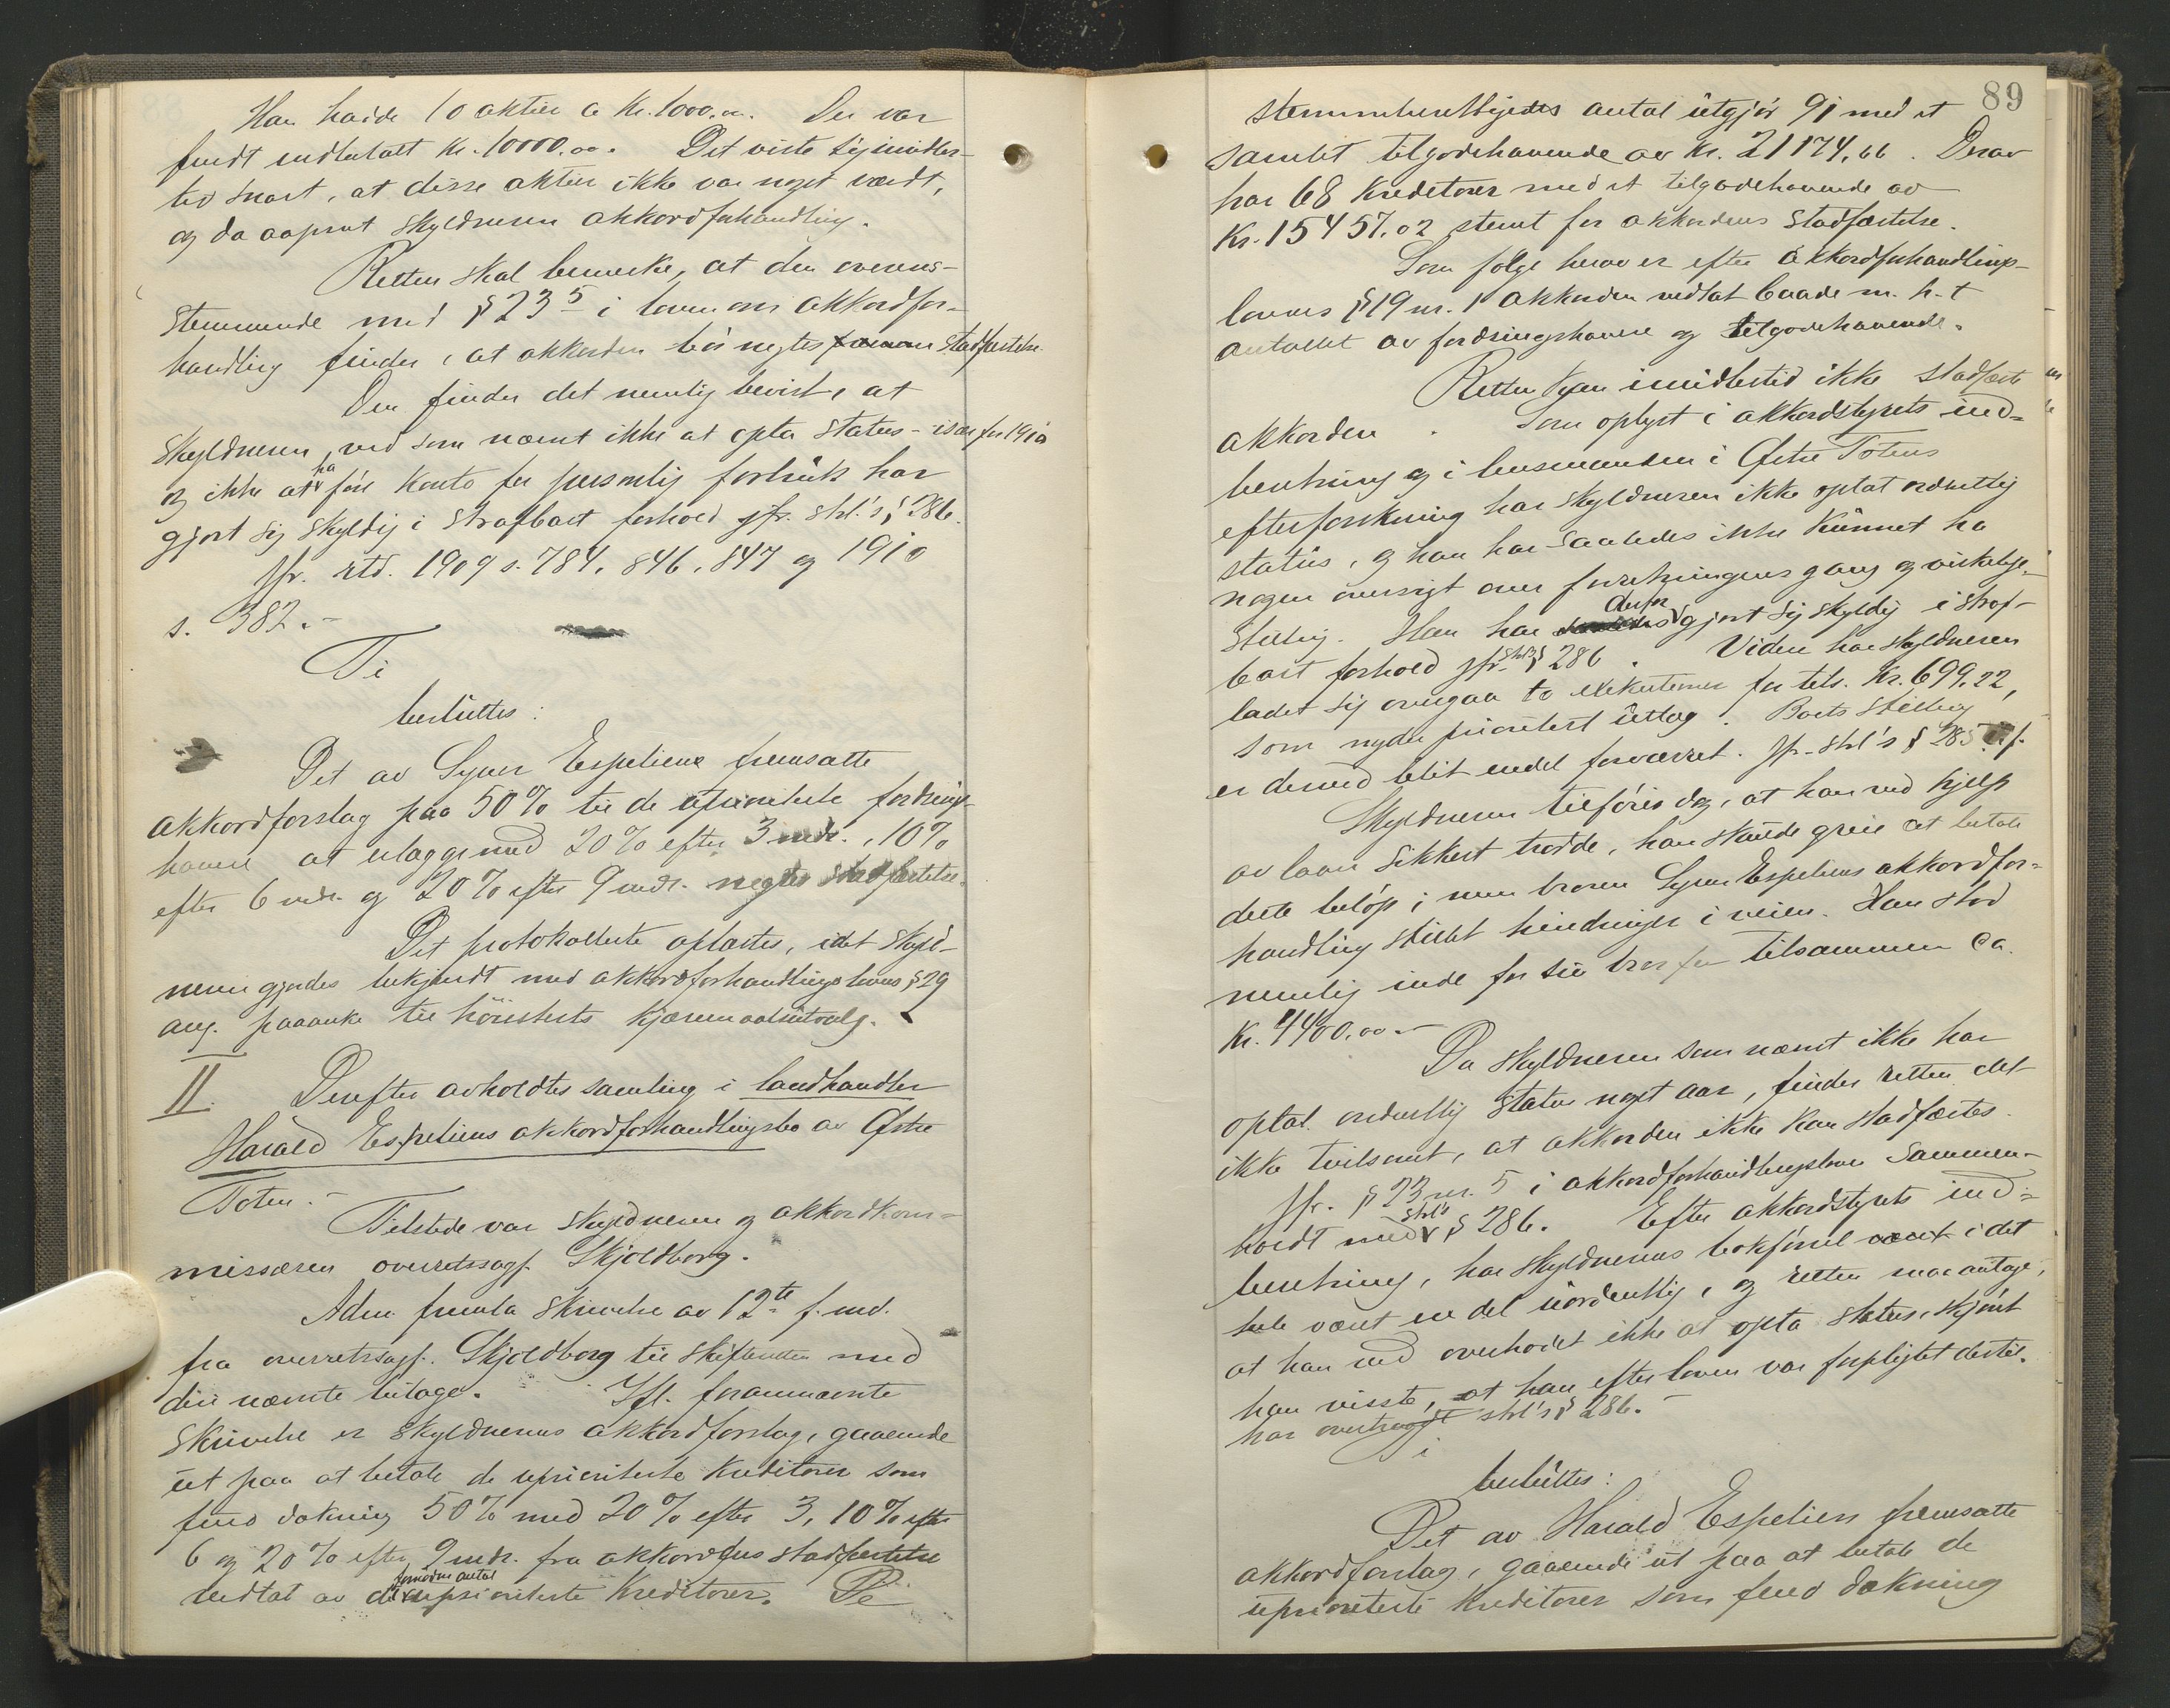 Han havde 10 aktier a Kr. 1000.00. Der var
fuldt indbetalt Kr. 10000.00. Det viste sig imidler-
tid snart, at disse aktier ikke var noget værdt,
og da aapnet skyldneren akkordforhandling.
Retten skal bemerke, at den overens-
stemmende med § 23⁵ i loven om akkordfor-
handling finder, at akkorden bør negtes stadfæstelse.
Den finder det nemlig bevist, at
skyldneren, ved som nævnt ikke at opta status - især for 1910
og ikke at ha ført konto for personlig forbruk har
gjort sig skyldig i strafbart forhold jfr. strl.'s § 286.
Jfr. rtd. 1909 s. 784, 846, 847 og 1910
s. 382.-
Ti
besluttes:
Det av Syver Espeliens fremsatte
akkordforslag paa 50% til de uprioriterte fordrings-
havere at erlægge med 20% efter 3 mdr., 10%
efter 6 mdr. og 20% efter 9 mdr. negtes stadfæstelse.
Det protokollerte oplæstes, idet skyld-
neren gjordes bekjendt med akkordforhandlingslovens § 29
ang. paaanke til høiesterets kjæremaalsutvalg.
II. Derefter avholdtes samling i landhandler
Harald Espeliens akkordforhandlingsbo av Østre
Toten.-
Tilstede var skyldneren og akkordkom-
missæren overretssagf. Skjoldborg.
Adm. fremla skrivelse av 12te f. md.
fra overretssagf. Skjoldborg til skifteretten med
deri nævnte bilage. Ifl. forannævnte
skrivelse er skyldnerens akkordforslag, gaaende
ut paa at betale de uprioriterte kreditorer som
fuld dækning 50% med 20% efter 3, 10% efter
6 og 20% efter 9 mdr. fra akkordens stadfæstelse
vedtat av det fornødne antal uprioriterte kreditorer. De
89
stemmeberettigedes antal utgjør 91 med et
samlet tilgodehavende av Kr. 21174,66. Derav
har 68 kreditorer med et tilgodehavende av
Kr. 15457.02 stemt for akkordens stadfæstelse.
Som følge herav er efter akkordforhandlings-
lovens § 19 nr. 1 akkorden vedtat baade m. h. t.
antallet av fordringshavere og tilgodehavende.
Retten kan imidlertid ikke stadfæste
akkorden. Som oplyst i akkordstyrets ind-
beretning og i lensmanden i Østre Totens
efterforskning har skyldneren ikke optat ordentlig
status, og han har saaledes ikke kunnet ha
nogen oversigt over forretningens gang og virkelige
stilling. Han har derfor gjort sig skyldig i straf-
bart forhold jfr. strl's § 286. Videre har skyldneren
ladet sig overgaa to eksekutioner for tils. Kr. 699.22,
som nyder prioritert utlæg. Boets stilling
er dermed blit endel forværret. Jfr. strl's § 285
Skyldneren tilføies dog, at han ved hjelp
av laan sikkert trodde, han skulde greie at betale
dette beløp; men broren Syver Espeliens akkordfor-
handling stillet hindringer i veien. Han stod
nemlig inde for sin bror for tilsammen ca.
Kr. 4400.00.-
Da skyldneren som nævnt ikke har
optat ordentlig status noget aar, finder retten det
ikke tvilsomt, at akkorden ikke kan stadfæstes.
Jfr. § 23 nr. 5 i akkordforhandlingsloven sammen-
holdt med strl's § 286. Efter akkordstyrets ind-
beretning, har skyldnerens bokførsel i det
hele været en del uordentlig, og retten maa antage,
at han ved overhodet ikke at opta status, skjønt
han visste, at han efter loven var forpligtet dertil,
har overtraadt strl's § 286.-
Ti
besluttes:
Det av Harald Espelien fremsatte
akkordforslag, gaaende ut paa at betale de
uprioriterte kreditorer som fuld dækning